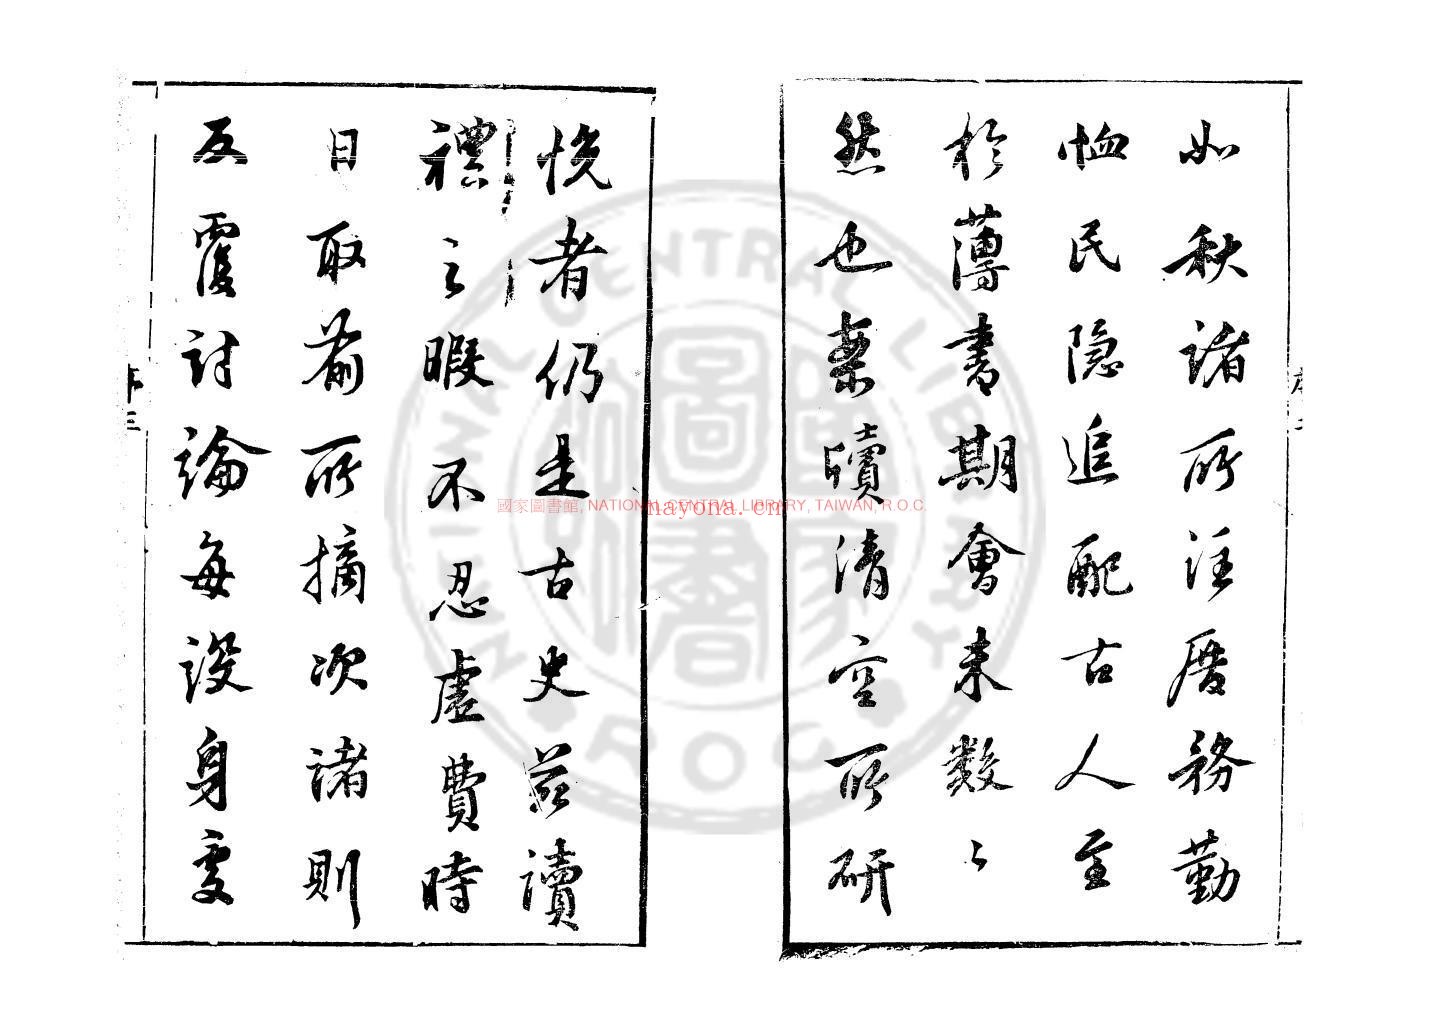 如秋諸所注厝務勤
恤民隐追配古人至
於薄書期會未數〻
然也案牘清空所研
悦者仍是古史茲讀
禮之暇不忍虛費時
日取前所摘次諸則
反覆討論每設身處
序三
國家圖書館, NATIONAL CENTRAL LIBRARY, TAIWAN, R.O.C.
nayona.cn
NATIONAL CENTRAL LIBRARY
R.O.C